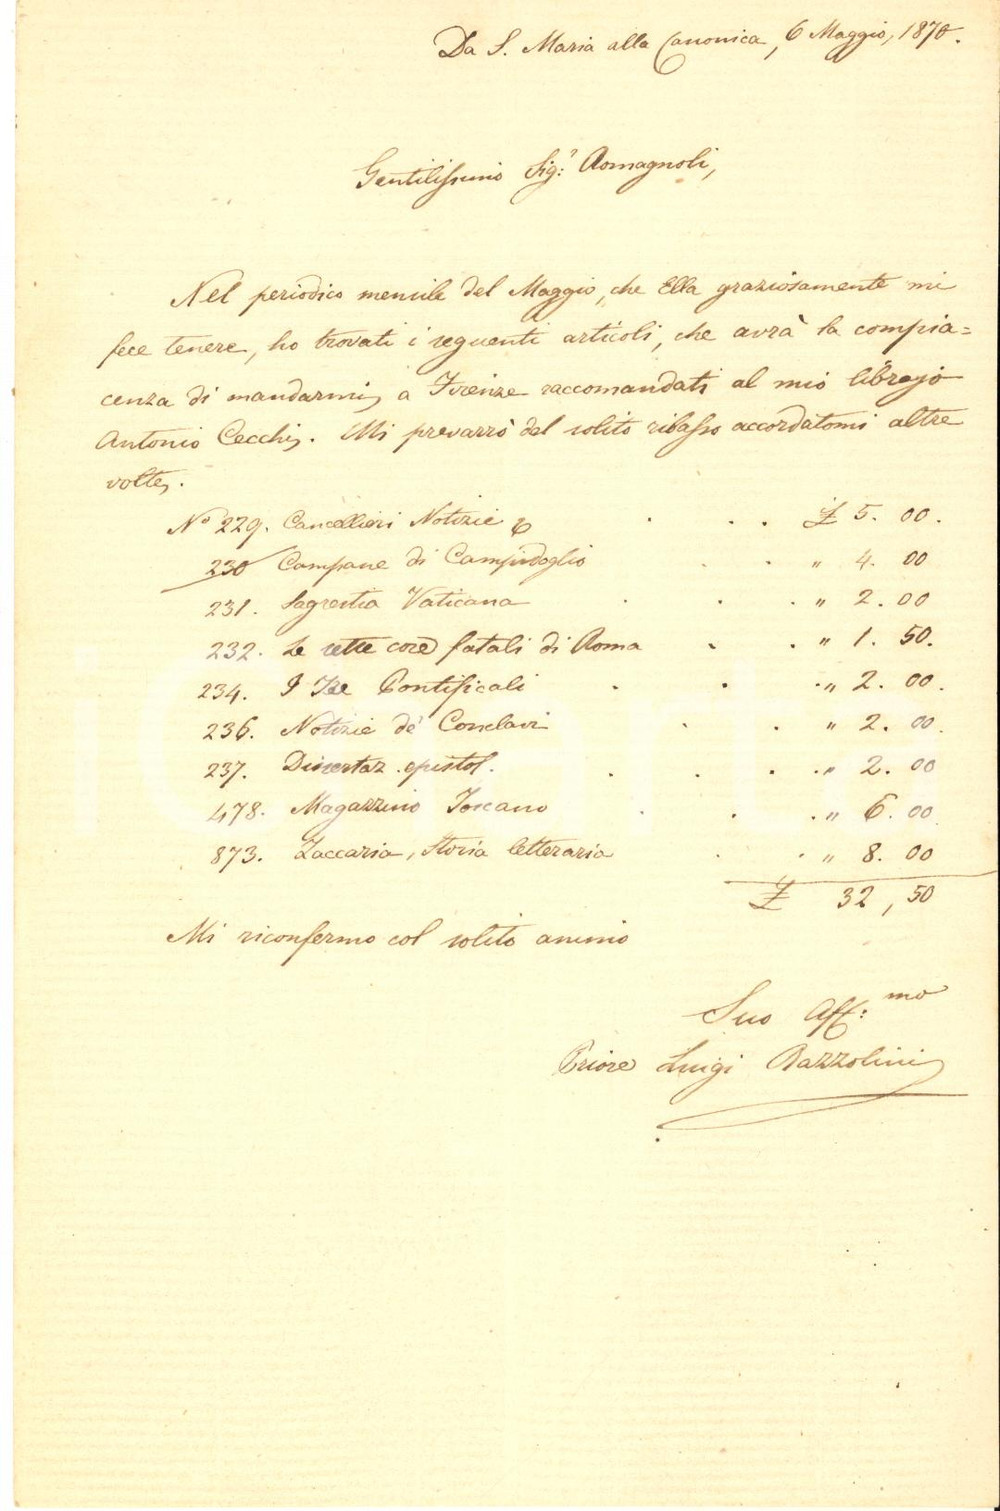 Da S. Maria alla Canonica, 6 Maggio, 1870.
Gentilissimo Sig.r Romagnoli,
Nel periodico mensile del Maggio, che Ella graziosamente mi
fece tenere, ho trovati i seguenti articoli, che avrà la compia=
cenza di mandarmi, a Firenze raccomandati al mio librajo
Antonio Cecchi. Mi prevarrò del solito ribasso accordatomi altre
volte.
No 229. Cancellieri Notizie £ 5. 00.
230 Campane di Campidoglio " 4. 00
231. Sagrestia Vaticana " 2. 00
232. Le sette cose fatali di Roma " 1. 50.
234. I Tre Pontificali " 2. 00.
236. Notizie de' Conclavi " 2. 00.
237. Dissertaz. epistol. " 2. 00
478. Magazzino Toscano " 6. 00
873. Zaccaria, Storia letteraria " 8. 00
£ 32, 50
Mi riconfermo col solito animo
Suo Aff:mo
Priore Luigi Razzolini